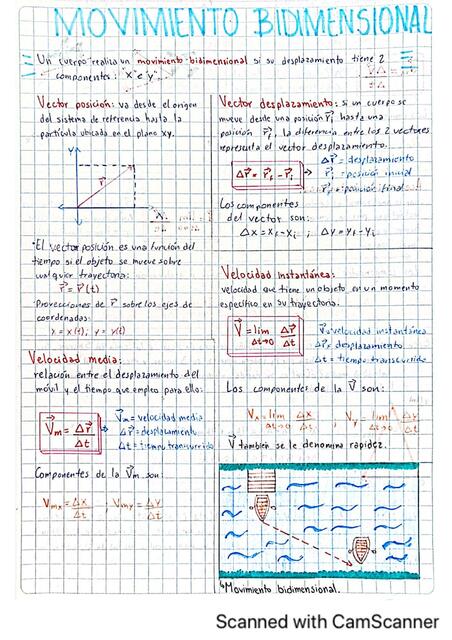 MOVIMIENTO BIDIMENSIONAL
Un cuerpo realiza un movimiento bidimensional si su desplazamiento tiene 2
componentes: "x" e "y"
Vector posición: va desde el origen
del sistema de referencia hasta la
partícula ubicada en el plano xy.
Y
r⃗
X
*El vector posición es una función del
tiempo si el objeto se mueve sobre
cualquier trayectoria:
r⃗ = r⃗(t)
·Proyecciones de r⃗ sobre los ejes de
coordenadas:
x = x(t); y = y(t)
Velocidad media:
relación entre el desplazamiento del
móvil y el tiempo que empleo para ello:
V⃗m = Δr⃗/Δt
V⃗m = velocidad media
Δr⃗ = desplazamiento
Δt = tiempo transcurrido
Componentes de la V⃗m son:
Vmx = Δx/Δt ; Vmy = Δy/Δt
Vector desplazamiento: si un cuerpo se
mueve desde una posición r⃗i hasta una
posición r⃗f, la diferencia entre los 2 vectores
representa el vector desplazamiento.
Δr⃗ = r⃗f - r⃗i
Δr⃗ = desplazamiento
r⃗i = posición inicial
r⃗f = posición final
Los componentes
del vector son:
Δx = xf - xi ; Δy = yf - yi
Velocidad instantánea:
velocidad que tiene un objeto en un momento
específico en su trayectoria.
V⃗ = lim Δt→0 Δr⃗/Δt
V⃗ = velocidad instantánea
Δr⃗ = desplazamiento
Δt = tiempo transcurrido
Los componentes de la V⃗ son:
Vx = lim Δt→0 Δx/Δt ; Vy = lim Δt→0 Δy/Δt
V⃗ también se le denomina rapidez.
Movimiento bidimensional.
Scanned with CamScanner